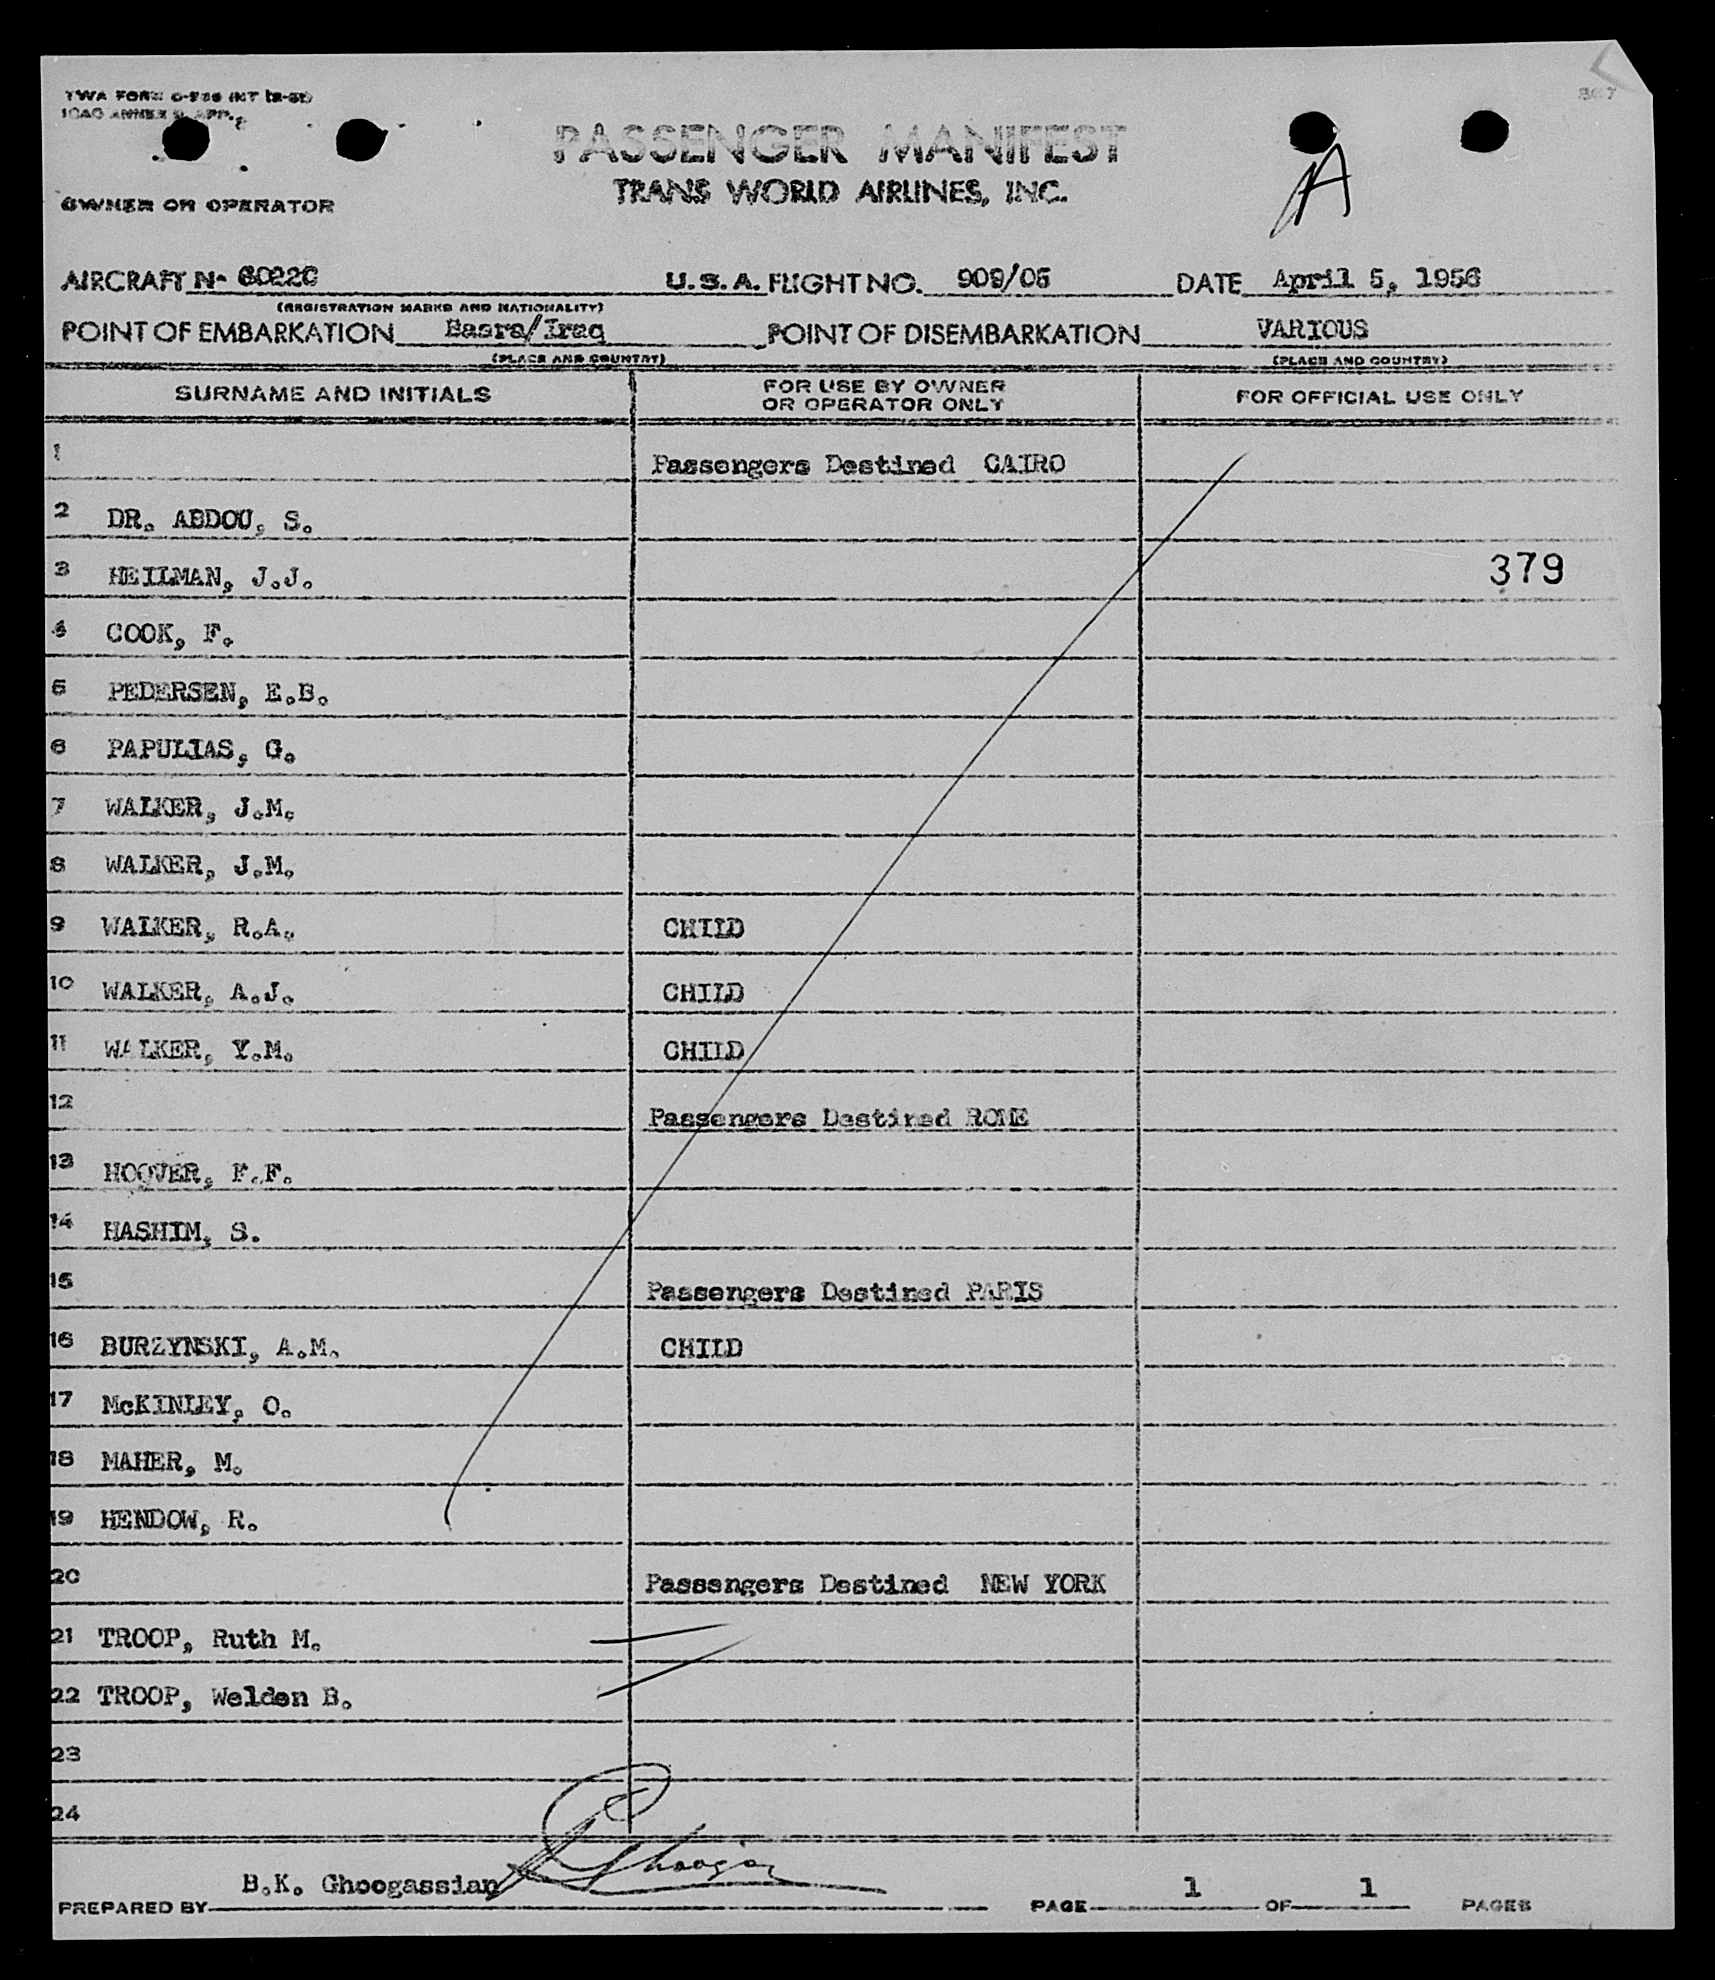 OWNER OR OPERATOR
PASSENGER MANIFEST
TRANS WORLD AIRLINES, INC.
A
AIRCRAFT N- 6022C U.S.A. FLIGHT NO. 908/05 DATE April 5, 1956
(REGISTRATION MARKS AND NATIONALITY)
POINT OF EMBARKATION Basra/Iraq POINT OF DISEMBARKATION VARIOUS
(PLACE AND COUNTRY) (PLACE AND COUNTRY)
SURNAME AND INITIALS FOR USE BY OWNER OR OPERATOR ONLY FOR OFFICIAL USE ONLY
1 Passengers Destined CAIRO
2 DR. ABDOU, S.
3 HEILMAN, J.J. 379
4 COOK, F.
5 PEDERSEN, E.B.
6 PAPULIAS, G.
7 WALKER, J.M.
8 WALKER, J.M.
9 WALKER, R.A. CHILD
10 WALKER, A.J. CHILD
11 WALKER, Y.M. CHILD
12 Passengers Destined ROME
13 HOOVER, F.F.
14 HASHIM, S.
15 Passengers Destined PARIS
16 BURZYNSKI, A.M. CHILD
17 McKINLEY, O.
18 MAHER, M.
19 HENDOW, R.
20 Passengers Destined NEW YORK
21 TROOP, Ruth M.
22 TROOP, Weldon B.
23
24
PREPARED BY B.K. Ghoogassian PAGE 1 OF 1 PAGES